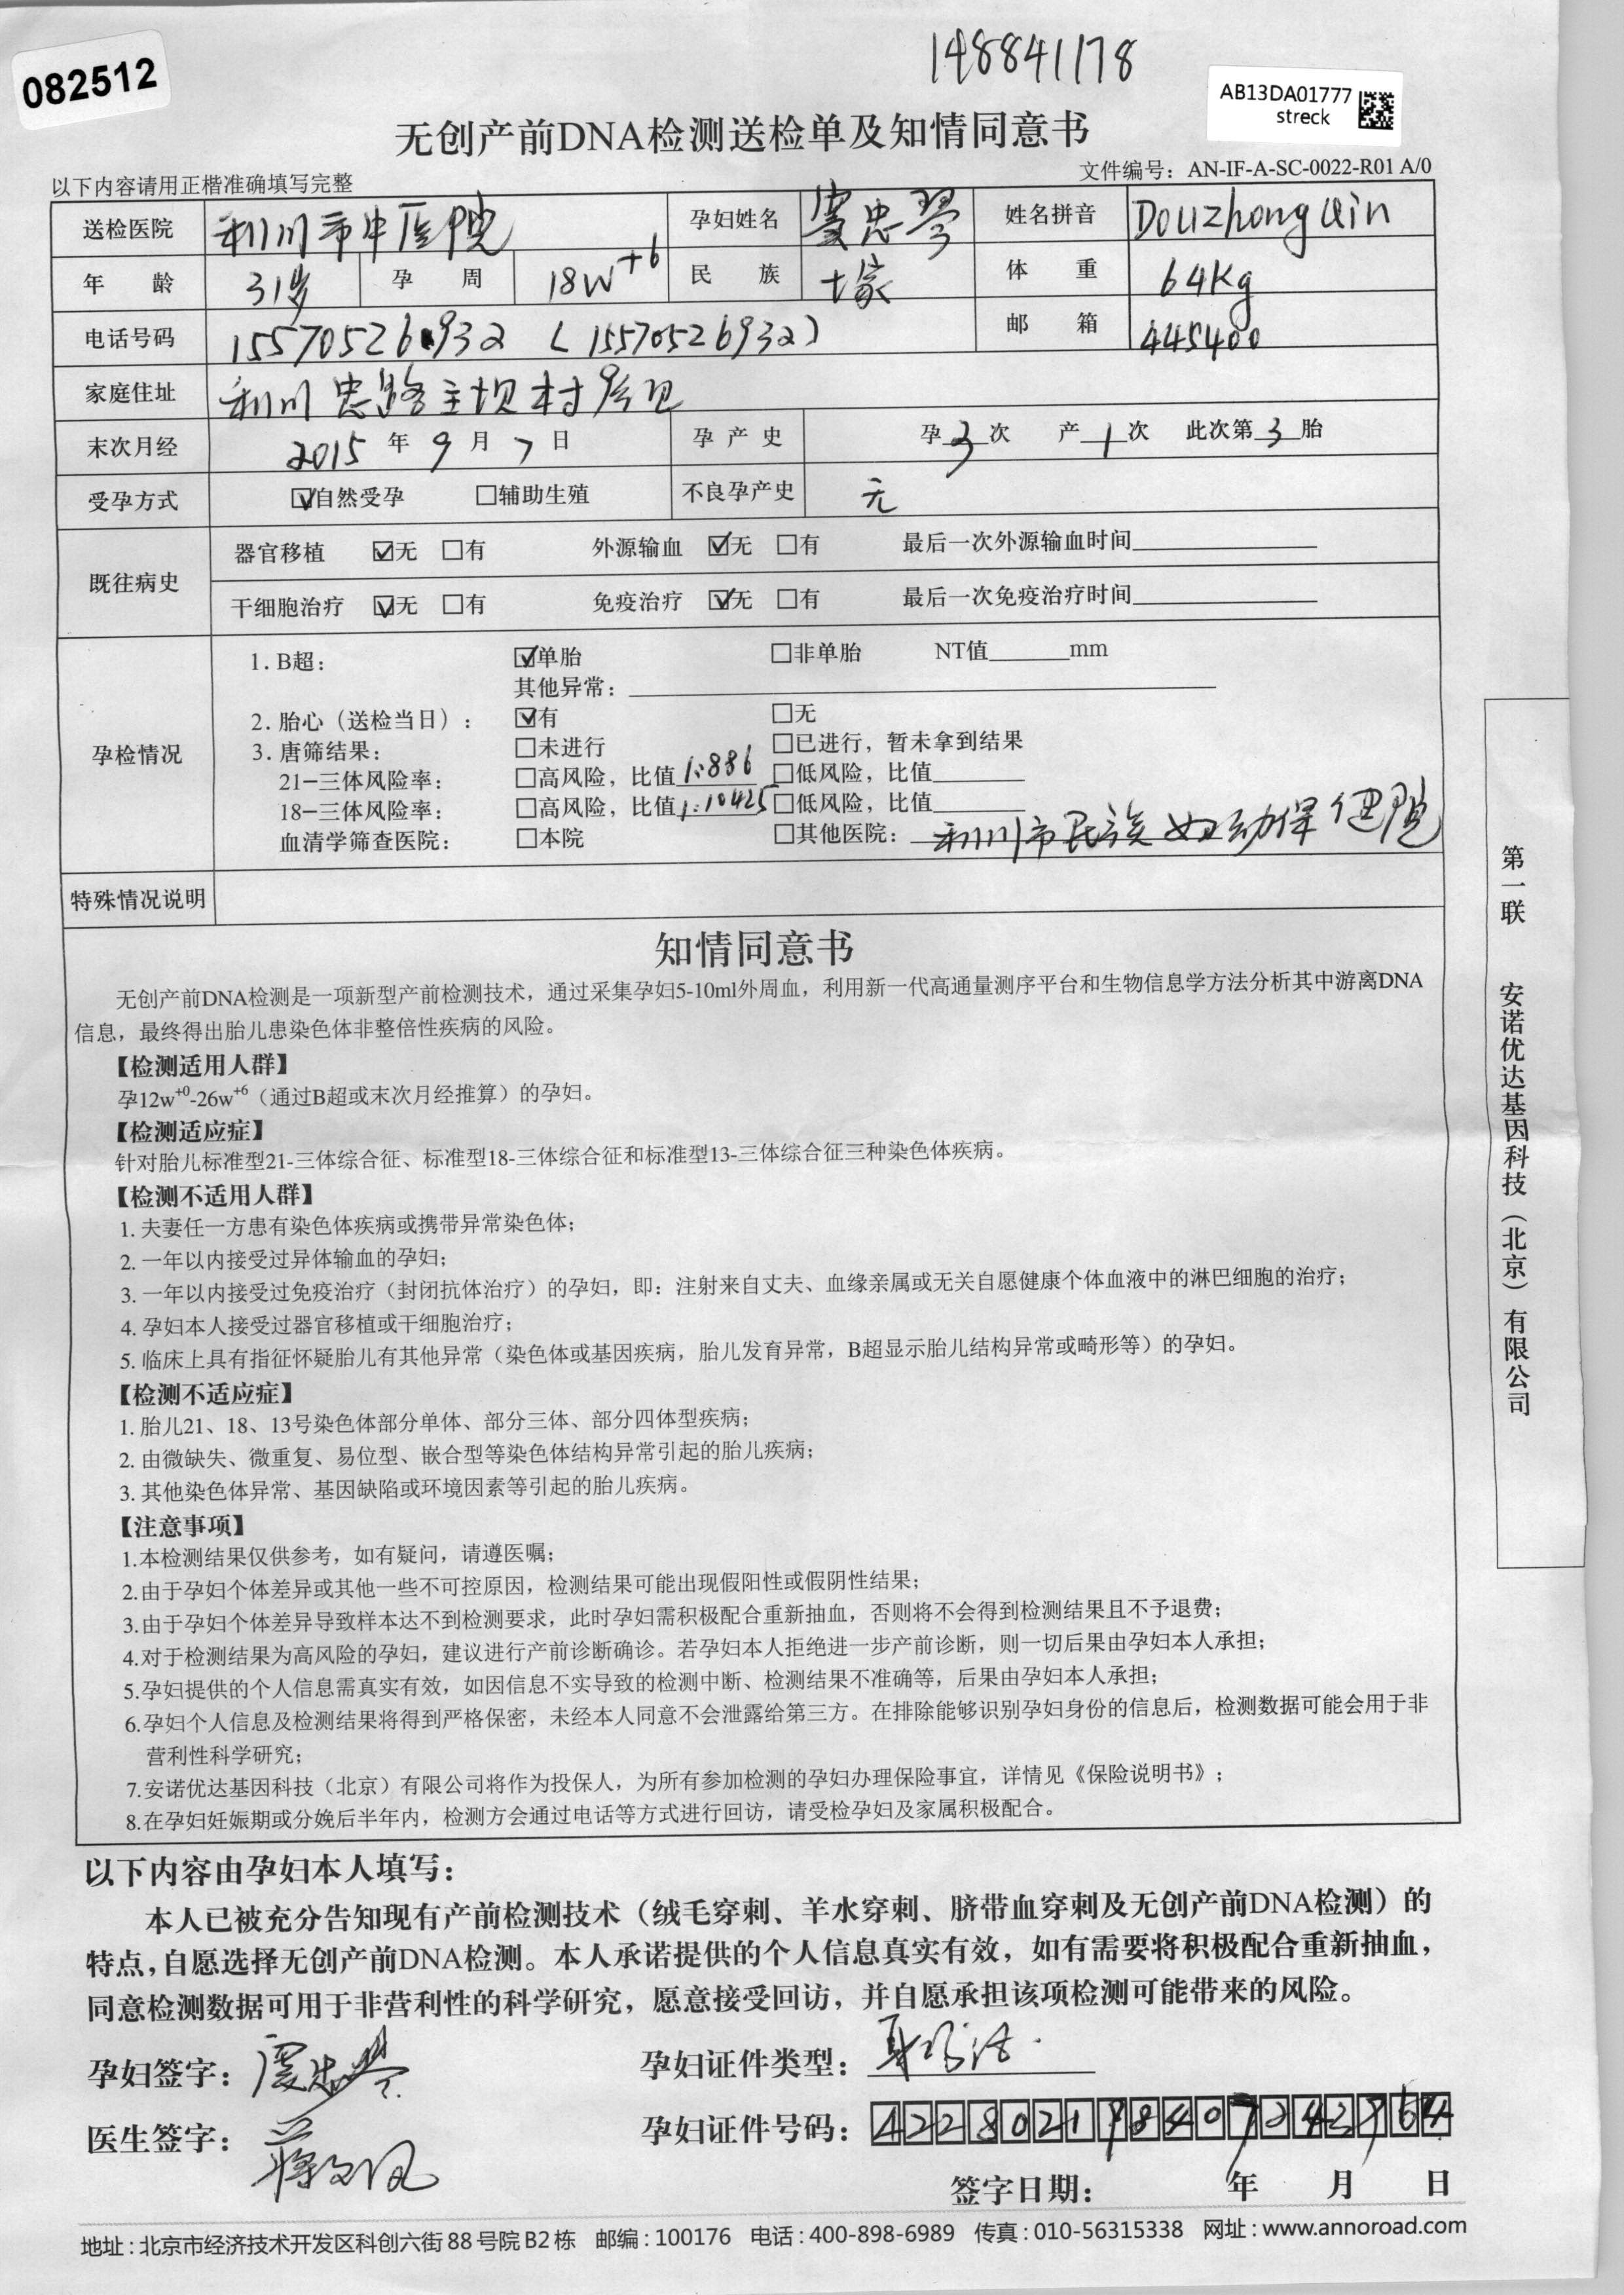 148841178
082512
AB13DA01777
streck
无创产前DNA检测送检单及知情同意书
以下内容请用正楷准确填写完整
文件编号：AN-IF-A-SC-0022-R01 A/0
送检医院 利川市中医院 孕妇姓名 窦忠琴 姓名拼音 Douzhongqin
年 龄 31岁 孕 周 18W+6 民 族 土家 体 重 64Kg
电话号码 15570526932 (15570526932) 邮 箱 445400
家庭住址 利川忠路主坝村
末次月经 2015 年 9 月 7 日 孕 产 史 孕 3 次 产 1 次 此次第 3 胎
受孕方式 ☑自然受孕 □辅助生殖 不良孕产史 无
既往病史
器官移植 ☑无 □有 外源输血 ☑无 □有 最后一次外源输血时间
干细胞治疗 ☑无 □有 免疫治疗 ☑无 □有 最后一次免疫治疗时间
孕检情况
1. B超： ☑单胎 □非单胎 NT值 mm
其他异常：
2. 胎心（送检当日）： ☑有 □无
3. 唐筛结果： □未进行 □已进行，暂未拿到结果
21-三体风险率： □高风险，比值 1:886 □低风险，比值
18-三体风险率： □高风险，比值 1:10425 □低风险，比值
血清学筛查医院： □本院 □其他医院： 利川市民族妇幼保健院
特殊情况说明
知情同意书
无创产前DNA检测是一项新型产前检测技术，通过采集孕妇5-10ml外周血，利用新一代高通量测序平台和生物信息学方法分析其中游离DNA
信息，最终得出胎儿患染色体非整倍性疾病的风险。
【检测适用人群】
孕12w+0-26w+6（通过B超或末次月经推算）的孕妇。
【检测适应症】
针对胎儿标准型21-三体综合征、标准型18-三体综合征和标准型13-三体综合征三种染色体疾病。
【检测不适用人群】
1. 夫妻任一方患有染色体疾病或携带异常染色体；
2. 一年以内接受过异体输血的孕妇；
3. 一年以内接受过免疫治疗（封闭抗体治疗）的孕妇，即：注射来自丈夫、血缘亲属或无关自愿健康个体血液中的淋巴细胞的治疗；
4. 孕妇本人接受过器官移植或干细胞治疗；
5. 临床上具有指征怀疑胎儿有其他异常（染色体或基因疾病，胎儿发育异常，B超显示胎儿结构异常或畸形等）的孕妇。
【检测不适应症】
1. 胎儿21、18、13号染色体部分单体、部分三体、部分四体型疾病；
2. 由微缺失、微重复、易位型、嵌合型等染色体结构异常引起的胎儿疾病；
3. 其他染色体异常、基因缺陷或环境因素等引起的胎儿疾病。
【注意事项】
1.本检测结果仅供参考，如有疑问，请遵医嘱；
2.由于孕妇个体差异或其他一些不可控原因，检测结果可能出现假阳性或假阴性结果；
3.由于孕妇个体差异导致样本达不到检测要求，此时孕妇需积极配合重新抽血，否则将不会得到检测结果且不予退费；
4.对于检测结果为高风险的孕妇，建议进行产前诊断确诊。若孕妇本人拒绝进一步产前诊断，则一切后果由孕妇本人承担；
5.孕妇提供的个人信息需真实有效，如因信息不实导致的检测中断、检测结果不准确等，后果由孕妇本人承担；
6.孕妇个人信息及检测结果将得到严格保密，未经本人同意不会泄露给第三方。在排除能够识别孕妇身份的信息后，检测数据可能会用于非
营利性科学研究；
7.安诺优达基因科技（北京）有限公司将作为投保人，为所有参加检测的孕妇办理保险事宜，详情见《保险说明书》；
8.在孕妇妊娠期或分娩后半年内，检测方会通过电话等方式进行回访，请受检孕妇及家属积极配合。
以下内容由孕妇本人填写：
本人已被充分告知现有产前检测技术（绒毛穿刺、羊水穿刺、脐带血穿刺及无创产前DNA检测）的
特点，自愿选择无创产前DNA检测。本人承诺提供的个人信息真实有效，如有需要将积极配合重新抽血，
同意检测数据可用于非营利性的科学研究，愿意接受回访，并自愿承担该项检测可能带来的风险。
孕妇签字： 窦忠琴 孕妇证件类型： 身份证
医生签字： 孕妇证件号码：
签字日期： 年 月 日
地址：北京市经济技术开发区科创六街88号院B2栋 邮编：100176 电话：400-898-6989 传真：010-56315338 网址：www.annoroad.com
第一联 安诺优达基因科技（北京）有限公司